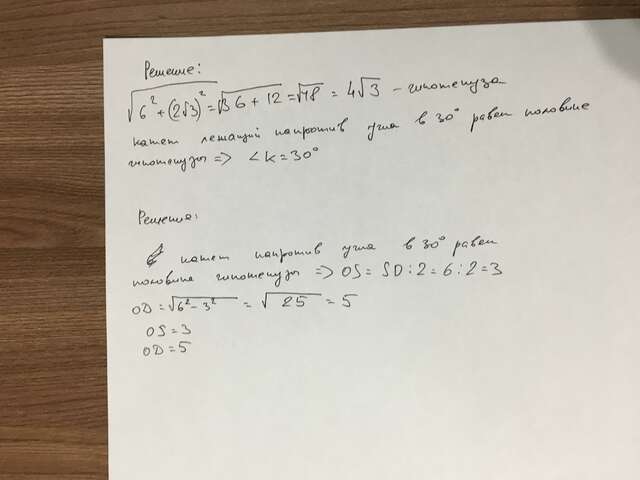 Решение:
√6²+(2√3)² = √36+12 = √48 = 4√3 - гипотенуза
катет лежащий напротив угла в 30° равен половине
гипотенузы => ∠K=30°
Решение:
катет напротив угла в 30° равен
половине гипотенузы => OS = SD:2 = 6:2=3
OD = √6²-3² = √25 = 5
OS=3
OD=5